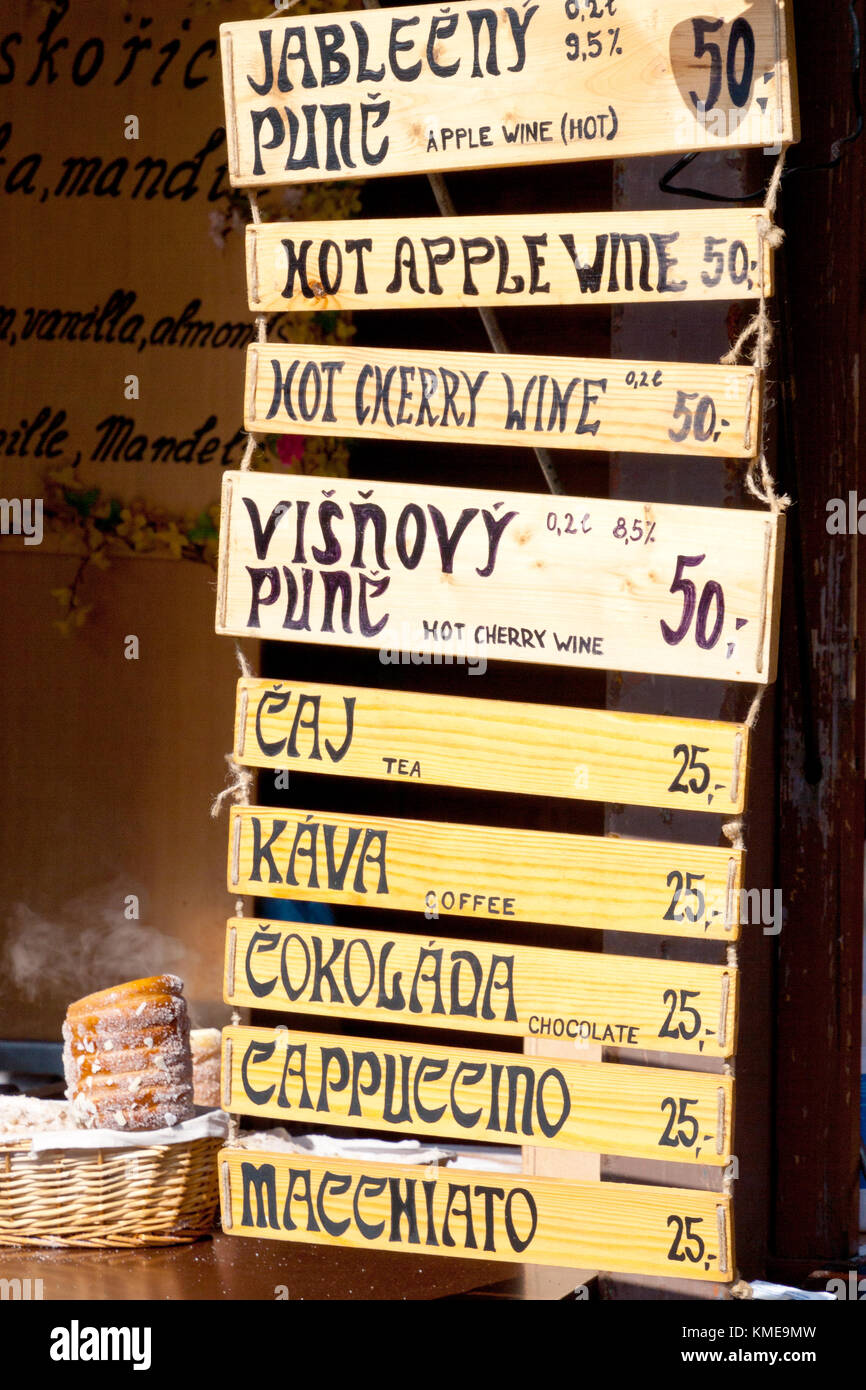 JABLEČNÝ 0,2ℓ
9,5%
PUNČ APPLE WINE (HOT) 50,-
HOT APPLE WINE 50,-
HOT CHERRY WINE 0,2ℓ 50,-
VIŠŇOVÝ 0,2ℓ 8,5%
PUNČ HOT CHERRY WINE 50,-
ČAJ TEA 25,-
KÁVA COFFEE 25,-
ČOKOLÁDA CHOCOLATE 25,-
CAPPUCCINO 25,-
MACCHIATO 25,-
vanilla, almonds
Mandel
alamy
a
alamy stock photo
Image ID: KME9MW
www.alamy.com